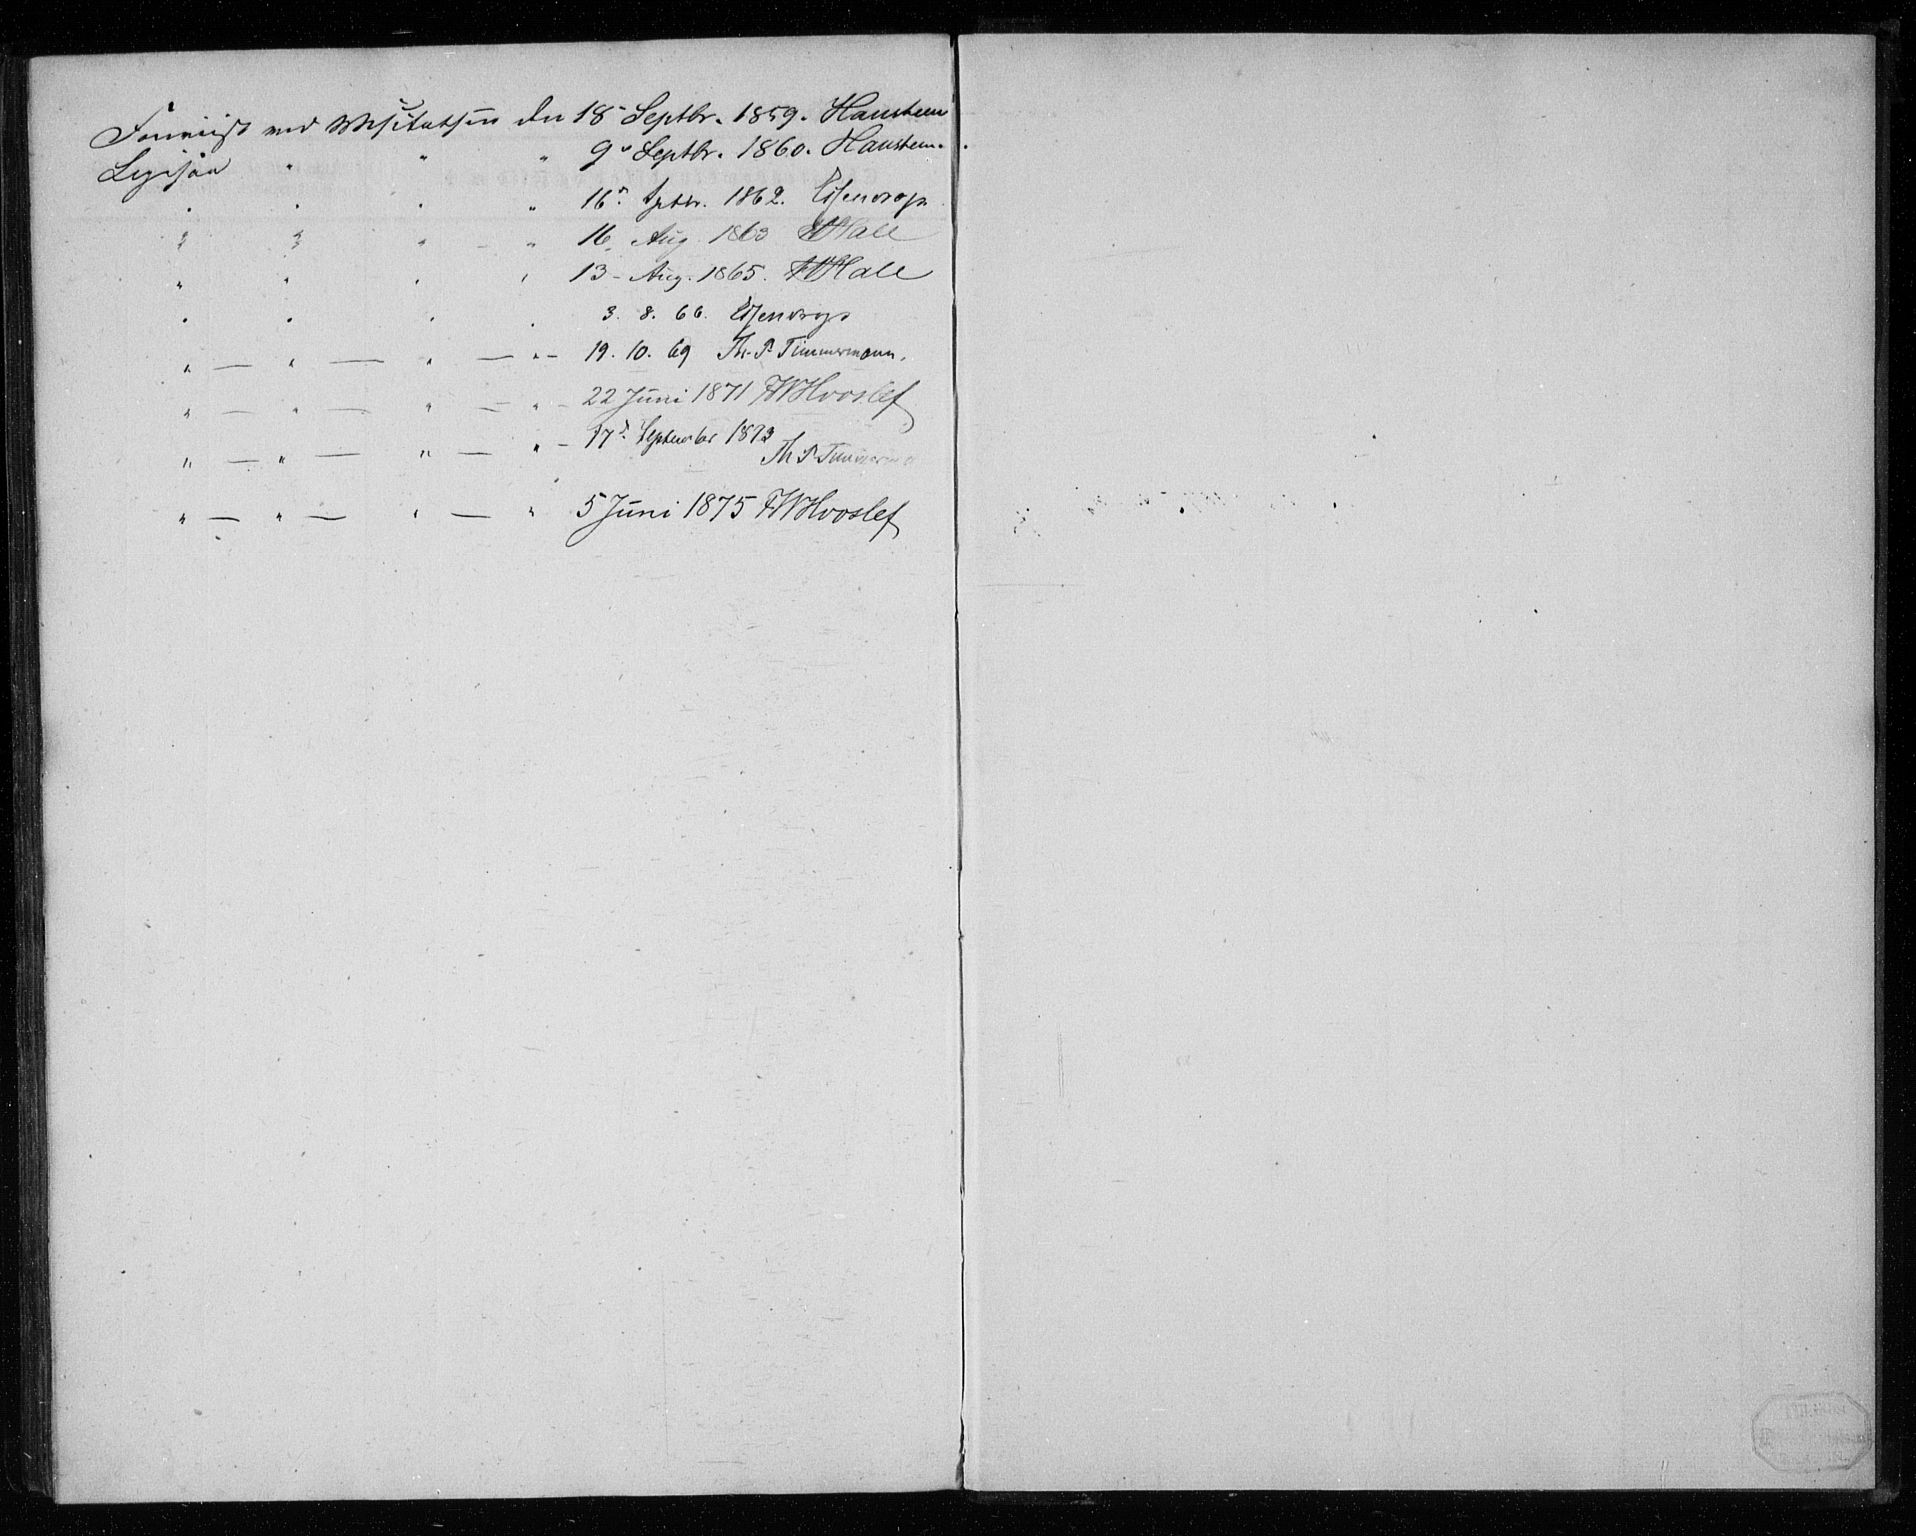 Foreviist ved Visitatsen den 18 Septbr. 1859. Hansteen
Ligesaa " " " 9 Septbr. 1860. Hansteen.
" " " " 16 Septbr. 1862.
" " " " 16 Aug. 1863 Hall
" " " " 13 - Aug. 1865. Hall
" " " " 3. 8. 66.
" — " — " — " — 19. 10. 69 Th. P. Timmermann.
" — " — " — " — 22 Juni 1871 FWHvoslef
" — " — " — " — 17 September 1873
Th P Timmermann
" — " — " — " 5 Juni 1875 FWHvoslef